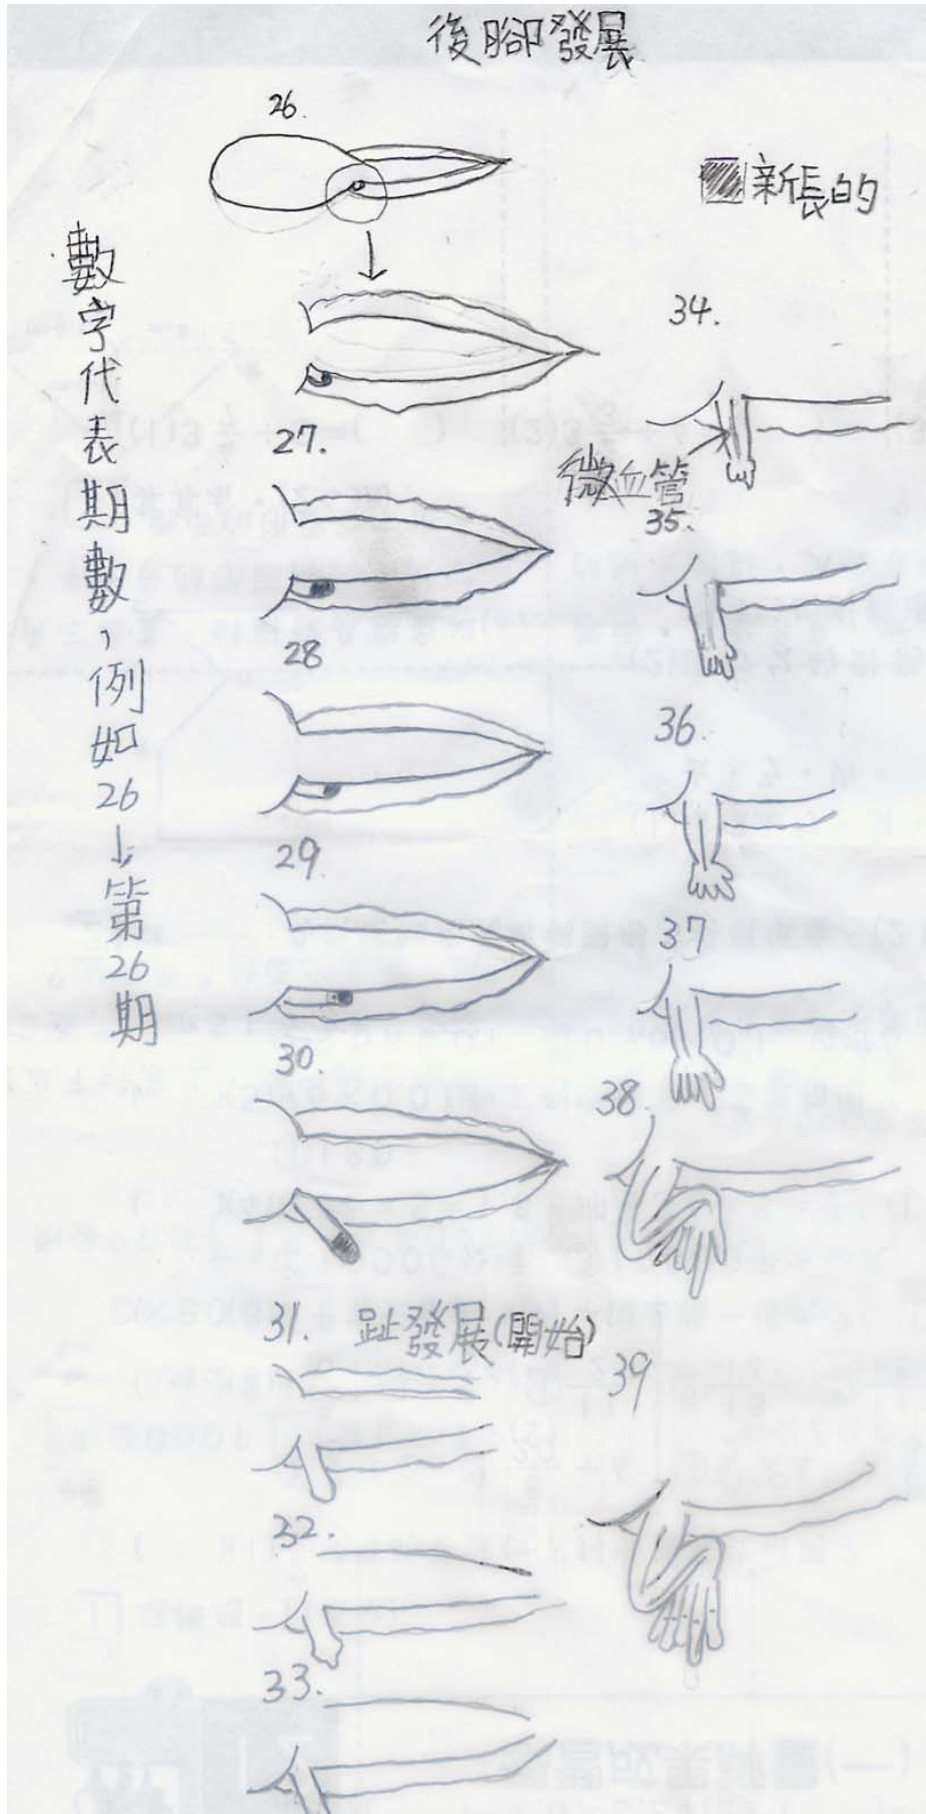 後腳發展
26.
新長的
數字代表期數，例如26→第26期
27.
28
29
30.
31. 趾發展(開始)
32.
33.
34.
微血管
35.
36.
37
38.
39